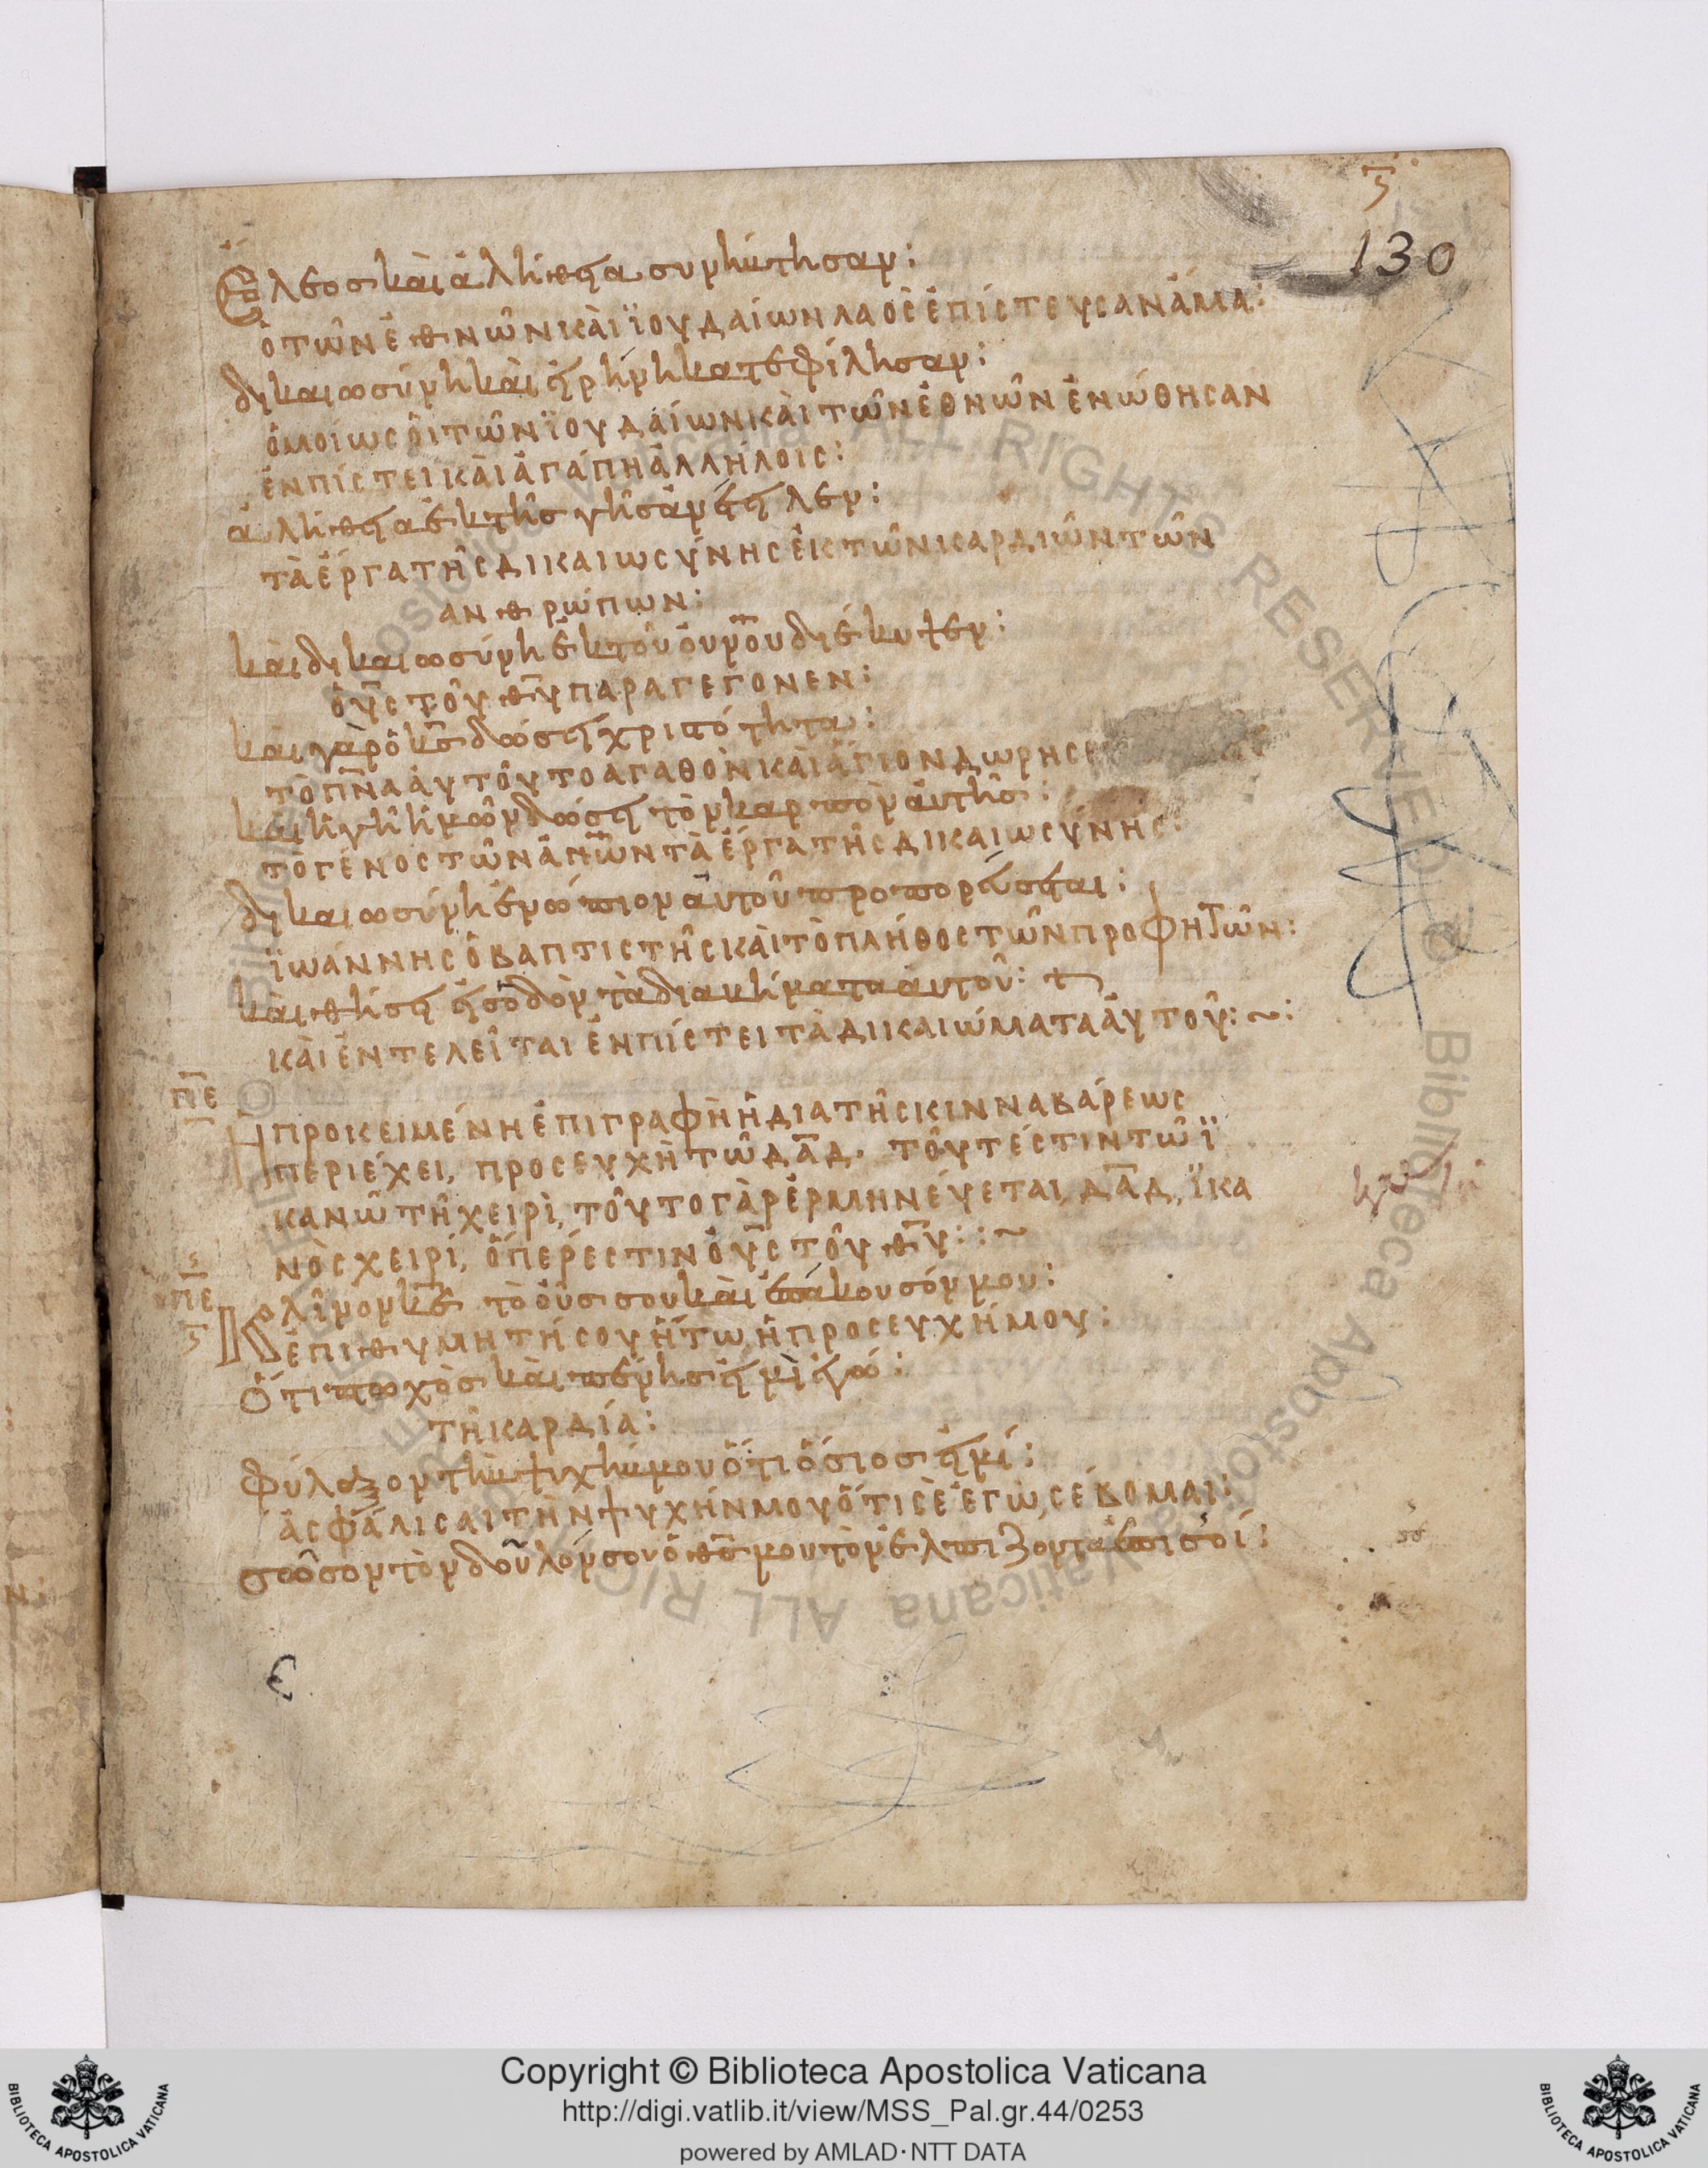 ς
130
Ἔλεος καὶ ἀλήθεια συνήντησαν:
ὁ τῶν ἐθνῶν καὶ ἰουδαίων λαὸς ἐπίστευσαν ἅμα:
δικαιωσύνη καὶ εἰρήνη κατεφίλησαν:
ὁμοίως οἱ τῶν ἰουδαίων καὶ τῶν ἐθνῶν ἐνώθησαν
ἐν πίστει καὶ ἀγάπη ἀλλήλοις:
ἀλήθεια ἐκ τῆς γῆς ἀνέτειλεν:
τὰ ἔργα τῆς δικαιωσύνης ἐκ τῶν καρδιῶν τῶν
ανθρώπων:
καὶ δικαιωσύνη ἐκ τοῦ οὐρ̅οῦ διέκυψεν:
ὁ υ̅ς τοῦ θ̅υ παραγέγονεν:
καὶ γὰρ ὁ κ̅ς δώσει χριστότητα:
τὸ π̅ν̅α αὐτοῦ το αγαθὸν καὶ ἅγιον δωρησε
καὶ ἡ γῆ ἡμῶν δώσει τὸν καρπὸν αὐτῆς:
τὸ γένος τῶν ἀν̅ων τὰ ἔργα τῆς δικαιωσύνης:
δικαιωσύνη ἐνώπιον αὐτοῦ προπορεύσεται:
ἰωάννης ὁ βαπτιστῆς καὶ τὸ πλήθος τῶν προφητῶν:
καὶ θήσει εἰς ὁδὸν τὰ διαβήματα αὐτοῦ:
καὶ ἐντελεῖται ἐν πίστει τὰ δικαιώματα αὐτοῦ: ~:
π̅ε
Ἡ προκειμένη ἐπιγραφὴ ἡ δια τῆς κινναβάρεως
περιέχει, προσευχὴ τῶ δ̅α̅δ. τοῦτέστιν τῶ ἰ
κανῶ τῇ χειρὶ, τοῦτο γὰρ ἑρμηνεύεται, δ̅α̅δ, ἱκα
νὸς χειρί, ὅπερ ἐστιν ὁ υ̅ς τοῦ θ̅υ: :~
π̅ε
Κλῖνον κ̅ε τὸ οὖς σου καὶ ἐπάκουσόν μου:
ἐπιθυμητή σου ἤτω ἡ προσευχή μου:
Ὅτι πτωχὸς καὶ πένης εἰμὶ ἐγώ:
τῆ καρδία:
φύλαξον τὴν ψυχήν μου ὅτι ὅσιος εἰμί:
ἀσφάλισαι τὴν ψυχήν μου ὅτι σὲ ἐγὼ, σέβομαι:
σῶσον τὸν δοῦλόν σου ὁ θ̅ς μου τὸν ἐλπίζοντα ἐπὶ σοί:
ε
Copyright © Biblioteca Apostolica Vaticana
http://digi.vatlib.it/view/MSS_Pal.gr.44/0253
powered by AMLAD·NTT DATA
BIBLIOTECA APOSTOLICA VATICANA
BIBLIOTECA APOSTOLICA VATICANA